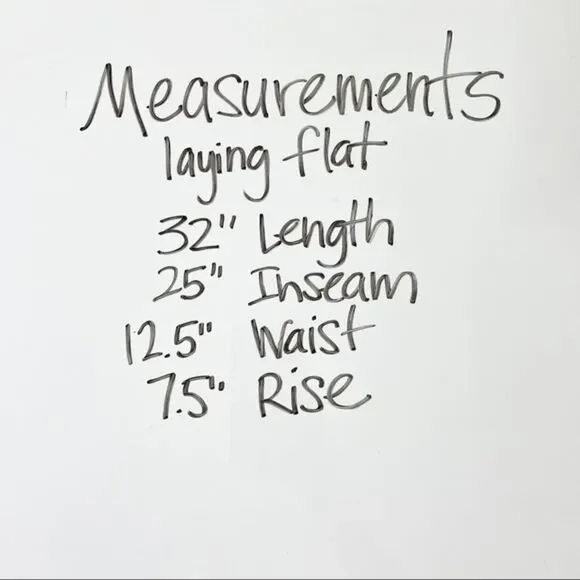 Measurements
laying flat
32" Length
25" Inseam
12.5" Waist
7.5" Rise